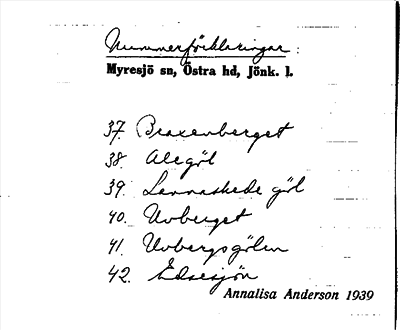 Nummerförklaringar:
Myresjö sn, Östra hd, Jönk. l.
37. Braxenberget
38. Alegöl
39. Lannaskede göl
40. Uvberget
41. Uvbergsgölen
42.
Annalisa Anderson 1939